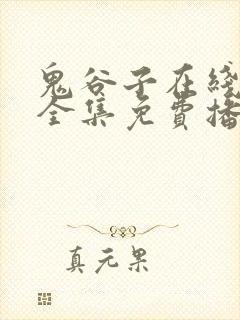 鬼谷子在綫
全集免費播
真元果